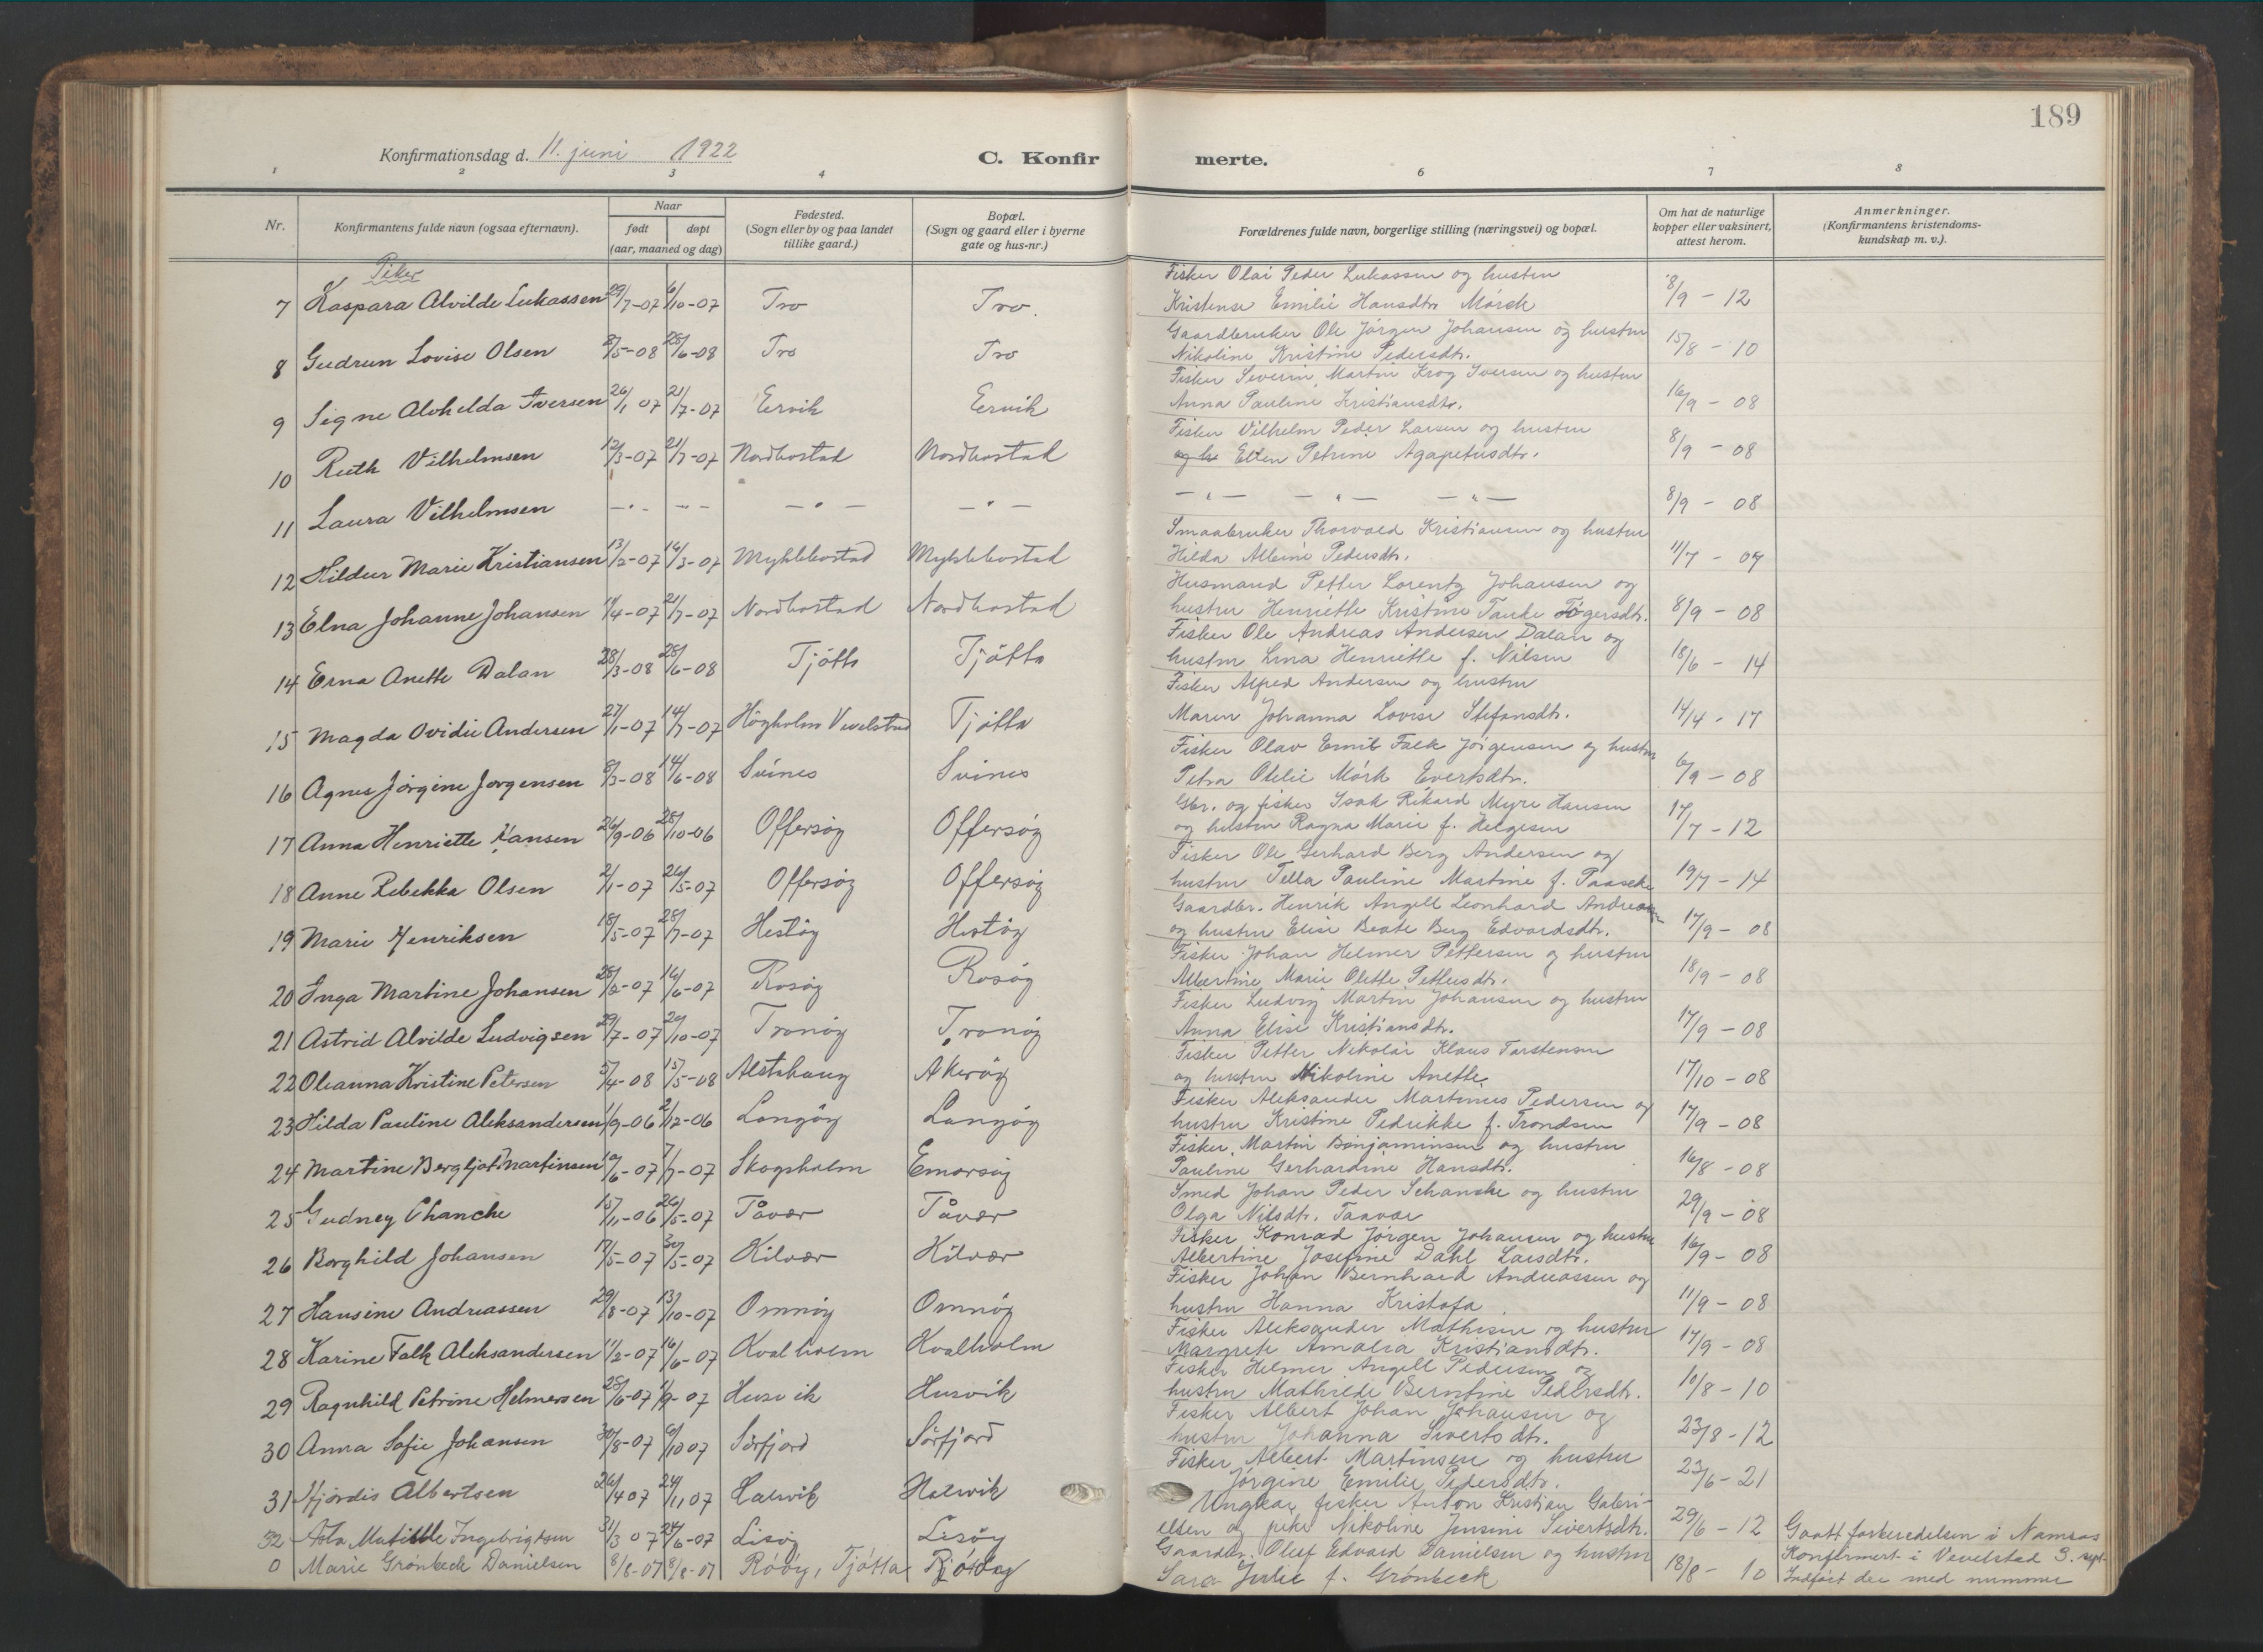 189
Konfirmationsdag d. 11. juni 1922
C. Konfir merte.
1 2 3 4 6 7 8
Nr.
Konfirmantens fulde navn (ogsaa efternavn).
Naar
født døpt
(aar, maaned og dag)
Fødested.
(Sogn eller by og paa landet
tillike gaard.)
Bopæl.
(Sogn og gaard eller i byerne
gate og hus-nr.)
Forældrenes fulde navn, borgerlige stilling (næringsvei) og bopæl.
Om hat de naturlige
kopper eller vaksinert,
attest herom.
Anmerkninger.
(Konfirmantens kristendoms-
kundskap m. v.).
Piker
7 Kaspara Alvilde Lukassen 29/7-07 6/10-07 Tro Tro. Fisker Olai Peder Lukassen og hustru
Kristense Emilie Hansdtr. Mørck 8/9 - 12
8 Gudrun Lovise Olsen 2/5-08 28/6-08 Tro Tro Gaardbruker Ole Jørgen Johansen og hustru
Nikoline Kristine Pedersdtr. 15/8 - 10
9 Signe Alvhelda Iversen 26/1 07 21/7-07 Eervik Eervik Fisker Severin Martin Krog Iversen og hustru
Anna Pauline Kristiansdtr. 16/9 - 08
10 Ruth Vilhelmsen 12/3-07 21/7-07 Nordbostad Nordbostad Fisker Vilhelm Peder Larsen og hustru
og h Ellen Petrine Agapetusdtr. 8/9 - 08
11 Laura Vilhelmsen - " - - " - - " - - " - - " - - " - - " - 8/9 - 08
12 Hildur Marie Kristiansen 13/2-07 16/3-07 Myklebostad Myklebostad Smaabruker Thorvald Kristiansen og hustru
Hilda Albine Pedersdtr. 11/7 - 07
13 Elna Johanne Johansen 11/4-07 21/7-07 Nordbostad Nordbostad Husmand Petter Lorentz Johansen og
hustru Henriette Kristine Tanke Tøgersdtr. 8/9 - 08
14 Erna Anette Dalan 28/3-08 28/6-08 Tjøtta Tjøtta Fisker Ole Andreas Andersen Dalan og
hustru Lina Henriette f. Nilsen 18/6 - 14
15 Magda Ovidie Andersen 27/1-07 14/7-07 Høgholm Vevelstad Tjøtta Fisker Alfred Andersen og hustru
Maren Johanna Lovise Stefansdtr. 14/4 - 17
16 Agnes Jørgine Jørgensen 8/3-08 14/6-08 Svines Svines Fisker Olav Emil Falk Jørgensen og hustru
Petra Otelie Mørk Evertsdtr. 6/9 - 08
17 Anna Henriette Hansen 26/9-06 28/10-06 Offersøy Offersøy Gbr. og fisker Isak Rikard Myre Hansen
og hustru Ragna Marie f. Helgesen 17/7 - 12
18 Anne Rebekka Olsen 2/1-07 26/5-07 Offersøy Offersøy Fisker Ole Gerhard Berg Andersen og
hustru Tella Pauline Martine f. Paasche 19/7 - 14
19 Marie Henriksen 18/5-07 28/7-07 Hestøy Hestøy Gaardbr. Henrik Angell Leonhard Andreassen
og hustru Elise Beate Berg Edvardsdtr. 17/9 - 08
20 Inga Martine Johansen 28/2-07 16/6-07 Rosøy Rosøy Fisker Johan Helmer Pettersen og hustru
Albertine Marie Olette Pettersdtr. 18/9 - 08
21 Astrid Alvilde Ludvigsen 29/7-07 20/10-07 Tronøy Tronøy Fisker Ludvig Martin Johansen og hustru
Anna Elise Kristiansdtr. 17/9 - 08
22 Oleanna Kristine Petersen 5/4-08 15/5-08 Alstahaug Akerøy Fisker Petter Nikolai Klaus Torstensen
og hustru Nikoline Anette 17/10 - 08
23 Hilda Pauline Aleksandersen 1/9-06 2/12-06 Langøy Langøy Fisker Aleksander Martinus Pedersen og
hustru Kristine Pedrikke f. Trondsen 17/9 - 08
24 Martine Bergljot Martinsen 10/6-07 7/7-07 Skogsholm Emarsøy Fisker Martin Benjaminsen og hustru
Pauline Gerhardine Hansdtr. 16/8 - 08
25 Gudney Chanche 15/11-06 26/5-07 Tåvær Tåvær Smed Johan Peder Schanche og hustru
Olga Nilsdtr. Taavær 29/9 - 08
26 Borghild Johansen 17/5-07 30/5-07 Kilvær Kilvær Fisker Konrad Jørgen Johansen og hustru
Albertine Josefine Dahl Larsdtr. 16/9 - 08
27 Hansine Andreassen 29/8-07 13/10-07 Omnøy Omnøy Fisker Johan Bernhard Andreassen og
hustru Hanna Kristofa 11/9 - 08
28 Karine Falk Aleksandersen 11/2-07 16/6-07 Kvalholm Kvalholm Fisker Aleksander Mathisen og hustru
Margrete Amalia Kristiansdtr. 17/9 - 08
29 Ragnhild Petrine Helmersen 28/6-07 1/9-07 Husvik Husvik Fisker Helmer Angell Pedersen og
hustru Mathrede Berntine Pedersdtr. 10/8 - 10
30 Anna Sofie Johansen 30/8-07 6/10 07 Sørfjord Sørfjord Fisker Albert Johan Johansen og
hustru Johanna Sivertsdtr. 23/8 - 12
31 Hjørdis Albertsen 26/4 07 24/11 07 Halsvik Halsvik Fisker Albert Martinsen og hustru
Jørgine Emilie Pedersdtr. 23/6 - 21
32 Asta Matilde Ingebrigtsen 31/3 07 24/6-07 Lisøy Lisøy Ungkar fisker Anton Kristian Gabri-
elsen og pike Nikoline Jensine Sivertsdtr. 29/6 - 12 Gaatt forberedelsen i Namsos
0 Marie Grønbeck Danielsen 8/8-07 8/8-07 Rødøy, Tjøtta Gaardbr. Oluf Edvard Danielsen og hustru
Sara Julie f. Grønbeck 18/8 - 10 Konfirmert i Vevelstad 3. sept.
Indført der med nummer